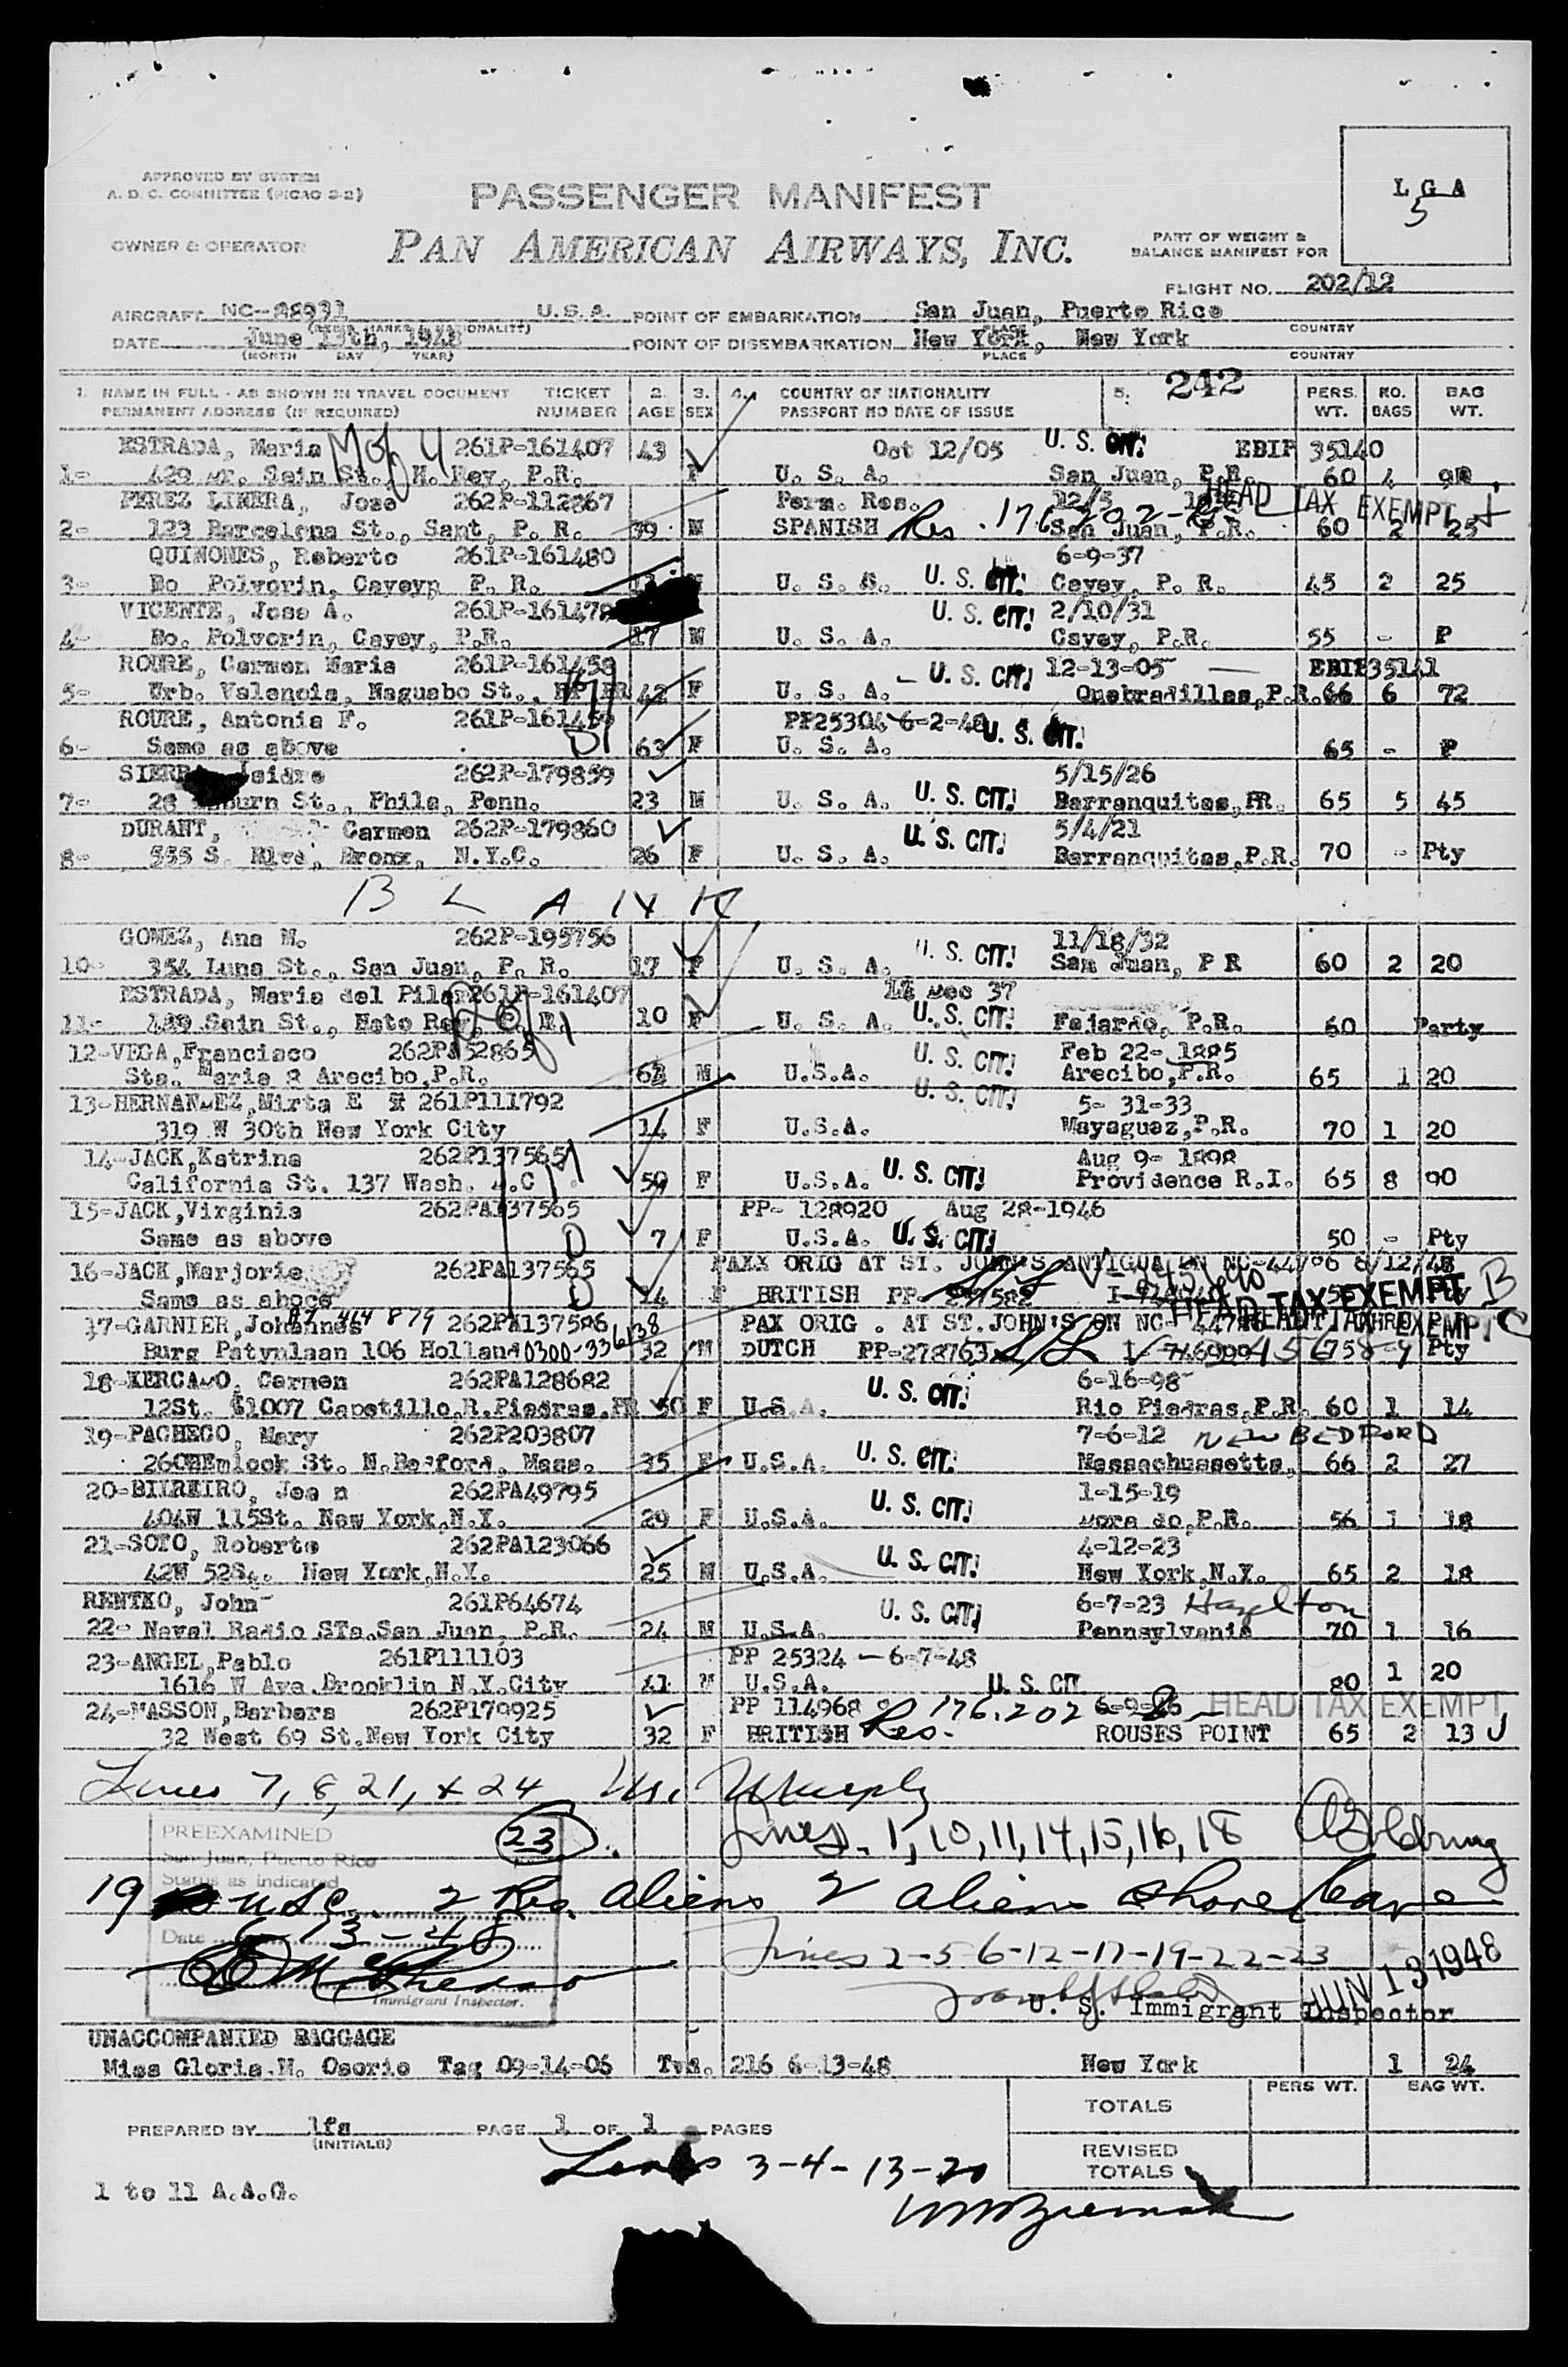 APPROVED BY SYSTEM
A. D. C. COMMITTEE (PICAO 3-2)
PASSENGER MANIFEST
L G A
5
OWNER & OPERATOR
PAN AMERICAN AIRWAYS, INC.
PART OF WEIGHT &
BALANCE MANIFEST FOR
FLIGHT NO. 202/12
AIRCRAFT NC-88931 U.S.A. POINT OF EMBARKATION San Juan, Puerto Rico
PLACE COUNTRY
DATE June 13th, 1948 POINT OF DISEMBARKATION New York, New York
(MONTH DAY YEAR) PLACE COUNTRY
1. NAME IN FULL - AS SHOWN IN TRAVEL DOCUMENT TICKET 2. 3. 4. COUNTRY OF NATIONALITY 5. 242 PERS. NO. BAG
PERMANENT ADDRESS (IF REQUIRED) NUMBER AGE SEX PASSPORT NO DATE OF ISSUE WT. BAGS WT.
ESTRADA, Maria 261P-161407 43 Oct 12/05 U. S. CIT! EBIP 35140
1- St., H. Rey, P.R. F U. S. A. San Juan, P.R. 60 4
PEREZ LINERA, Jose 262P-112867 Perm. Res. 12/5 HEAD TAX EXEMPT
2- 123 Barcelona St., Sant, P. R. 39 M SPANISH Res. 176.202- San Juan, P.R. 60 2 25
QUINONES, Roberto 261P-161480 6-9-37
3- Bo Polvorin, Cayeyp P. R. U. S. S. U. S. CIT! Cayey, P. R. 45 2 25
VICENTE, Jose A. 261P-161479 U. S. CIT! 2/10/31
4- Bo. Polvorin, Cayey, P.R. 17 M U. S. A. Cayey, P.R. 55 - P
ROURE, Carmen Maria 261P-161458 U. S. CIT! 12-13-05 EBIP35141
5- Urb. Valencia, Naguabo St., 42 F U. S. A. Quebradillas, P.R. 66 6 72
ROURE, Antonia F. 261P-161459 PP25304 6-2-48 U. S. CIT!
6- Same as above 63 F U. S. A. 65 - P
SIERRA Isidro 262P-179859 5/15/26
7- 28 burn St., Phila, Penn. 23 M U. S. A. U. S. CIT! Barranquitas, PR. 65 5 45
DURANT, Carmen 262P-179860 5/4/21
8- 555 S. Blvd, Bronx, N.Y.C. 26 F U. S. A. U. S. CIT! Barranquitas, P.R. 70 - Pty
B L A N K
GOMEZ, Ana M. 262P-195756 11/18/32
10- 354 Luna St., San Juan, P. R. 17 F U. S. A. U. S. CIT! San Juan, P R 60 2 20
ESTRADA, Maria del Pilar 261P-161407 Dec 37
11- 429 Sain St., Hato Rey, P. R. 10 F U. S. A. U. S. CIT! Fajardo, P.R. 60 Party
12-VEGA, Francisco 262PA52865 U. S. CIT! Feb 22- 1885
Sta. Maria 2 Arecibo, P.R. M U.S.A. Arecibo, P.R. 65 1 20
13-HERNANDEZ, Mirta E 261P111792 U. S. CIT! 5- 31-33
319 W 30th New York City 14 F U.S.A. Mayaguez, P.R. 70 1 20
14-JACK, Katrina 262P137565 Aug 9- 1898
California St. 137 Wash. D.C 50 F U.S.A. U. S. CIT! Providence R.I. 65 8 90
15-JACK, Virginia 262PA137565 PP- 128920 Aug 28-1946
Same as above 7 F U.S.A. U. S. CIT! 50 - Pty
16-JACK, Marjorie 262PA137565 PAXX ORIG AT ST. JOHN'S ANTIGUA ON NC-44706 6/12/48
Same as above BRITISH PP- HEAD TAX EXEMPT B
17-GARNIER, Johannes 262PA137586 PAX ORIG . AT ST. JOHN'S ON NC- HEAD TAX EXEMPT C
Burg Patynlaan 106 Holland 0300-336138 32 M DUTCH PP-278763 Pty
18-MERCADO, Carmen 262PA128682 U. S. CIT! 6-16-98
12St. 1007 Capetillo, R. Piedras, PR 50 F U.S.A. Rio Piedras, P.R. 60 1 14
19-PACHECO, Mary 262P203807 7-6-12 NEW BEDFORD
260HEmlock St. N. Bedford, Mass. 35 F U.S.A. U. S. CIT! Massachussetts, 66 2 27
20-BILREIRO, Jea n 262PA49795 U. S. CIT! 1-15-19
404W 115St. New York, N.Y. 29 F U.S.A. P.R. 56 1 18
21-SOTO, Roberto 262PA123066 U. S. CIT! 4-12-23
42W New York, N.Y. 25 M U.S.A. New York, N.Y. 65 2 18
RENTKO, John 261P64674 U. S. CIT! 6-7-23 Hazelton
22- Naval Radio STa. San Juan, P.R. 24 M U.S.A. Pennsylvania 70 1 16
23-ANGEL, Pablo 261P111103 PP 25324 - 6-7-48
1616 W Ava. Brooklin N.Y. City 41 M U.S.A. U. S. CIT 80 1 20
24-MASSON, Barbara 262P179925 PP 114968 176.202 HEAD TAX EXEMPT
32 West 69 St. New York City 32 F BRITISH Res. ROUSES POINT 65 2 13
Lines 7, 8, 21, & 24 Murphy
PREEXAMINED
San Juan, Puerto Rico
Status as indicated
23
Lines 1, 10, 11, 14, 15, 16, 18
19 USC. 2 Res. aliens 2 aliens Shore leave
Date 6-13-48
Lines 2-5-6-12-17-19-22-23
JUN 13 1948
Immigrant Inspector.
U. S. Immigrant Inspector
UNACCOMPANIED BAGGAGE
Miss Gloria M. Osorio Tag 09-14-06 216 6-13-48 New York 1 24
PERS WT. BAG WT.
TOTALS
PREPARED BY lfs PAGE 1 OF 1 PAGES
(INITIALS)
REVISED
TOTALS
Lines 3-4-13-20
1 to 11 A.A.G.